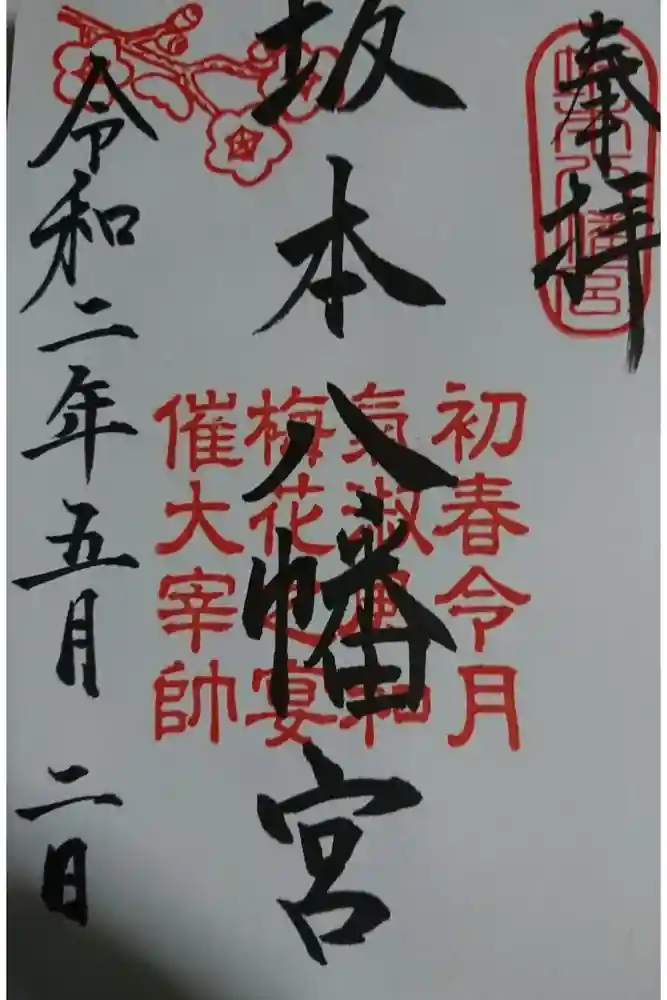 奉拝
坂本八幡宮
初春令月
氣淑風和
梅花之宴
催大宰帥
令和二年五月二日